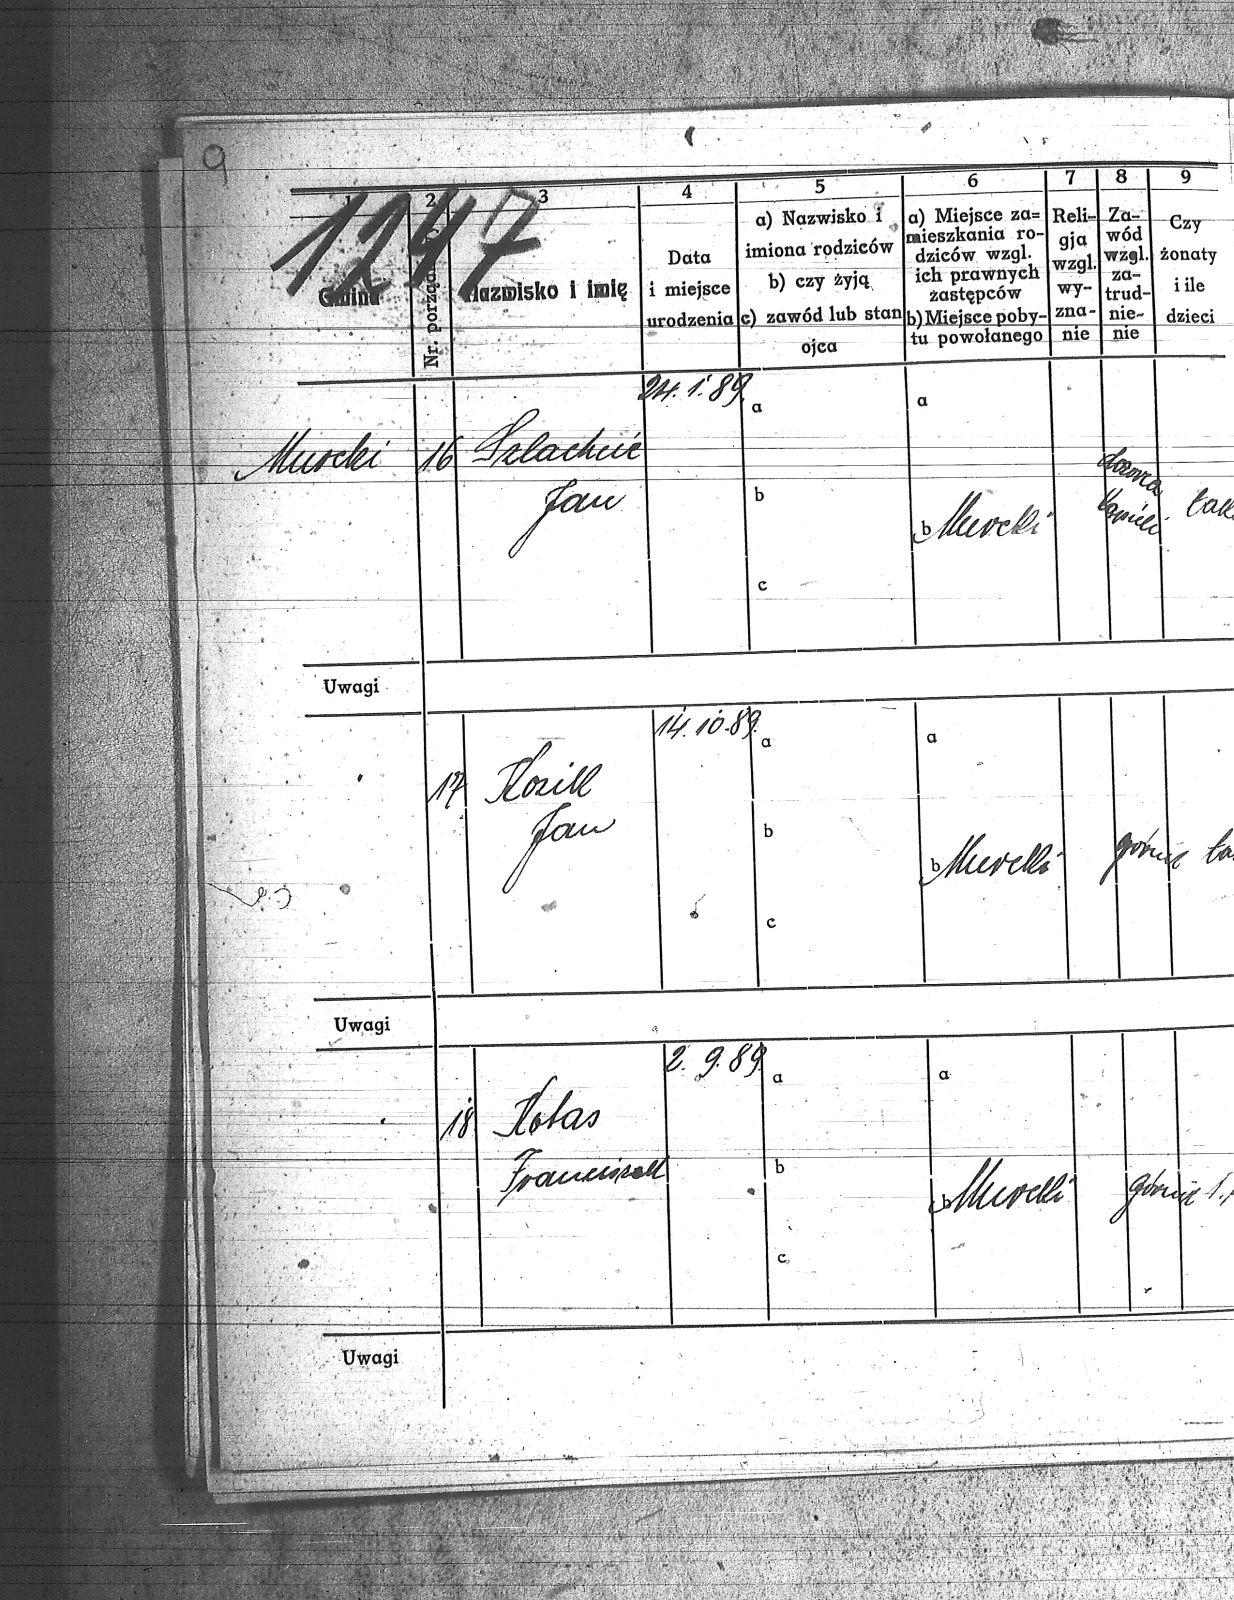 9
1247
1 2 3 4 5 6 7 8 9
Gmina
Nr. porząd
Nazwisko i imię
Data
i miejsce
urodzenia
a) Nazwisko i
imiona rodziców
b) czy żyją
c) zawód lub stan
ojca
a) Miejsce za=
mieszkania ro-
dziców wzgl.
ich prawnych
zastępców
b) Miejsce poby-
tu powołanego
Reli-
gja
wzgl.
wy-
zna-
nie
Za-
wód
wzgl.
za-
trud-
nie-
nie
Czy
żonaty
i ile
dzieci
24.1.89.
a
a
Murcki 16 Szlachcic
Jan
b
b Murcki
dozorca
kąpieli
c
Uwagi
14.10.89.
a
a
17 Kozik
Jan
b
b Murcki górnik
c
Uwagi
2.9.89.
a
a
18 Kotas
Franciszek
b
b Murcki górnik
c
Uwagi